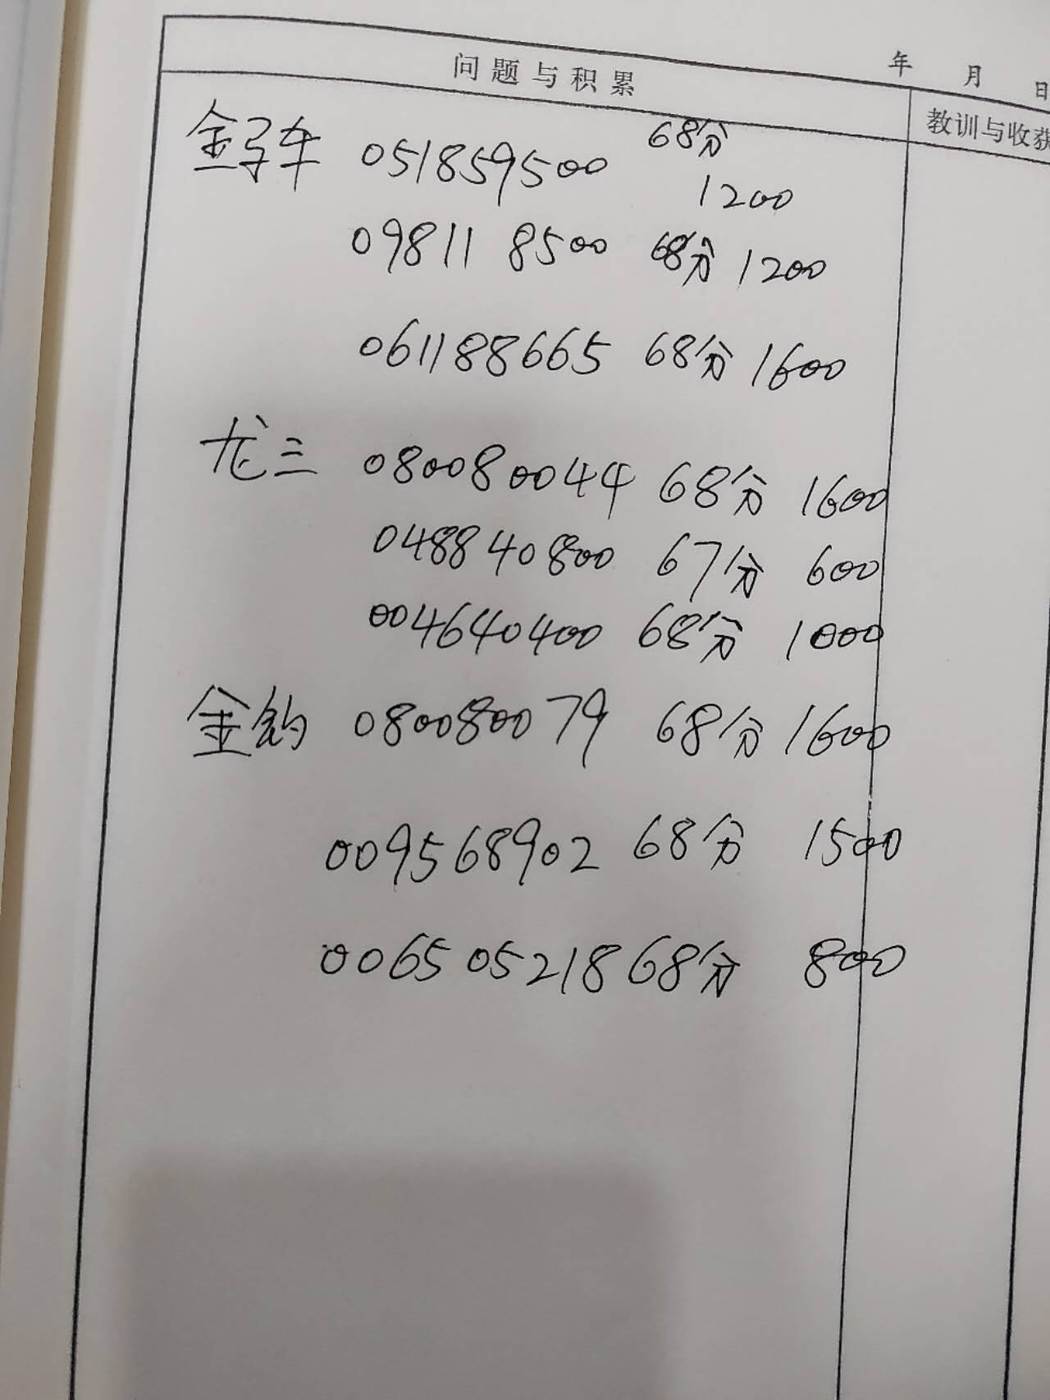 年 月 日
问题与积累
教训与收获
金孑车 051859500 68分
1200
09811 8500 68分 1200
061188665 68分 1600
龙三 080080044 68分 1600
048840800 67分 600
004640400 68分 1000
金钩 080080079 68分 1600
009568902 68分 1500
0065 05218 68分 800